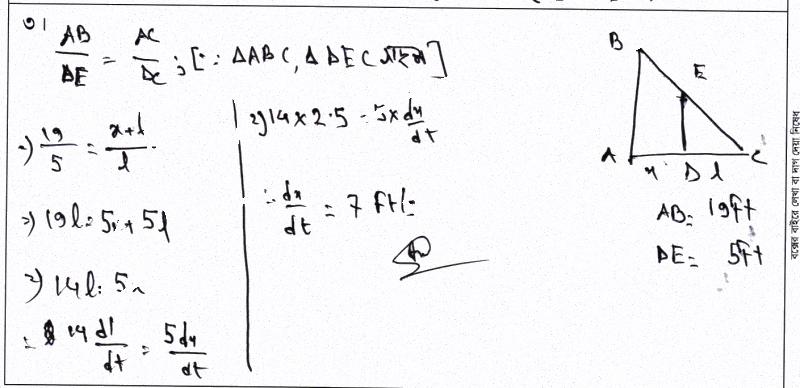 ৩।
AB/DE = AC/DC ; [∵ ΔABC, Δ DEC সদৃশ]
⇒) 19/5 = x+l/l
⇒) 19l = 5x + 5l
⇒) 14l = 5x
= 14 dl/dt = 5dx/dt
⇒) 14 × 2.5 = 5 × dx/dt
∴ dx/dt = 7 ft/s
B
E
A x D l C
AB = 19ft
DE = 5ft
বক্সের বাইরে লেখা বা দাগ দেয়া নিষেধ